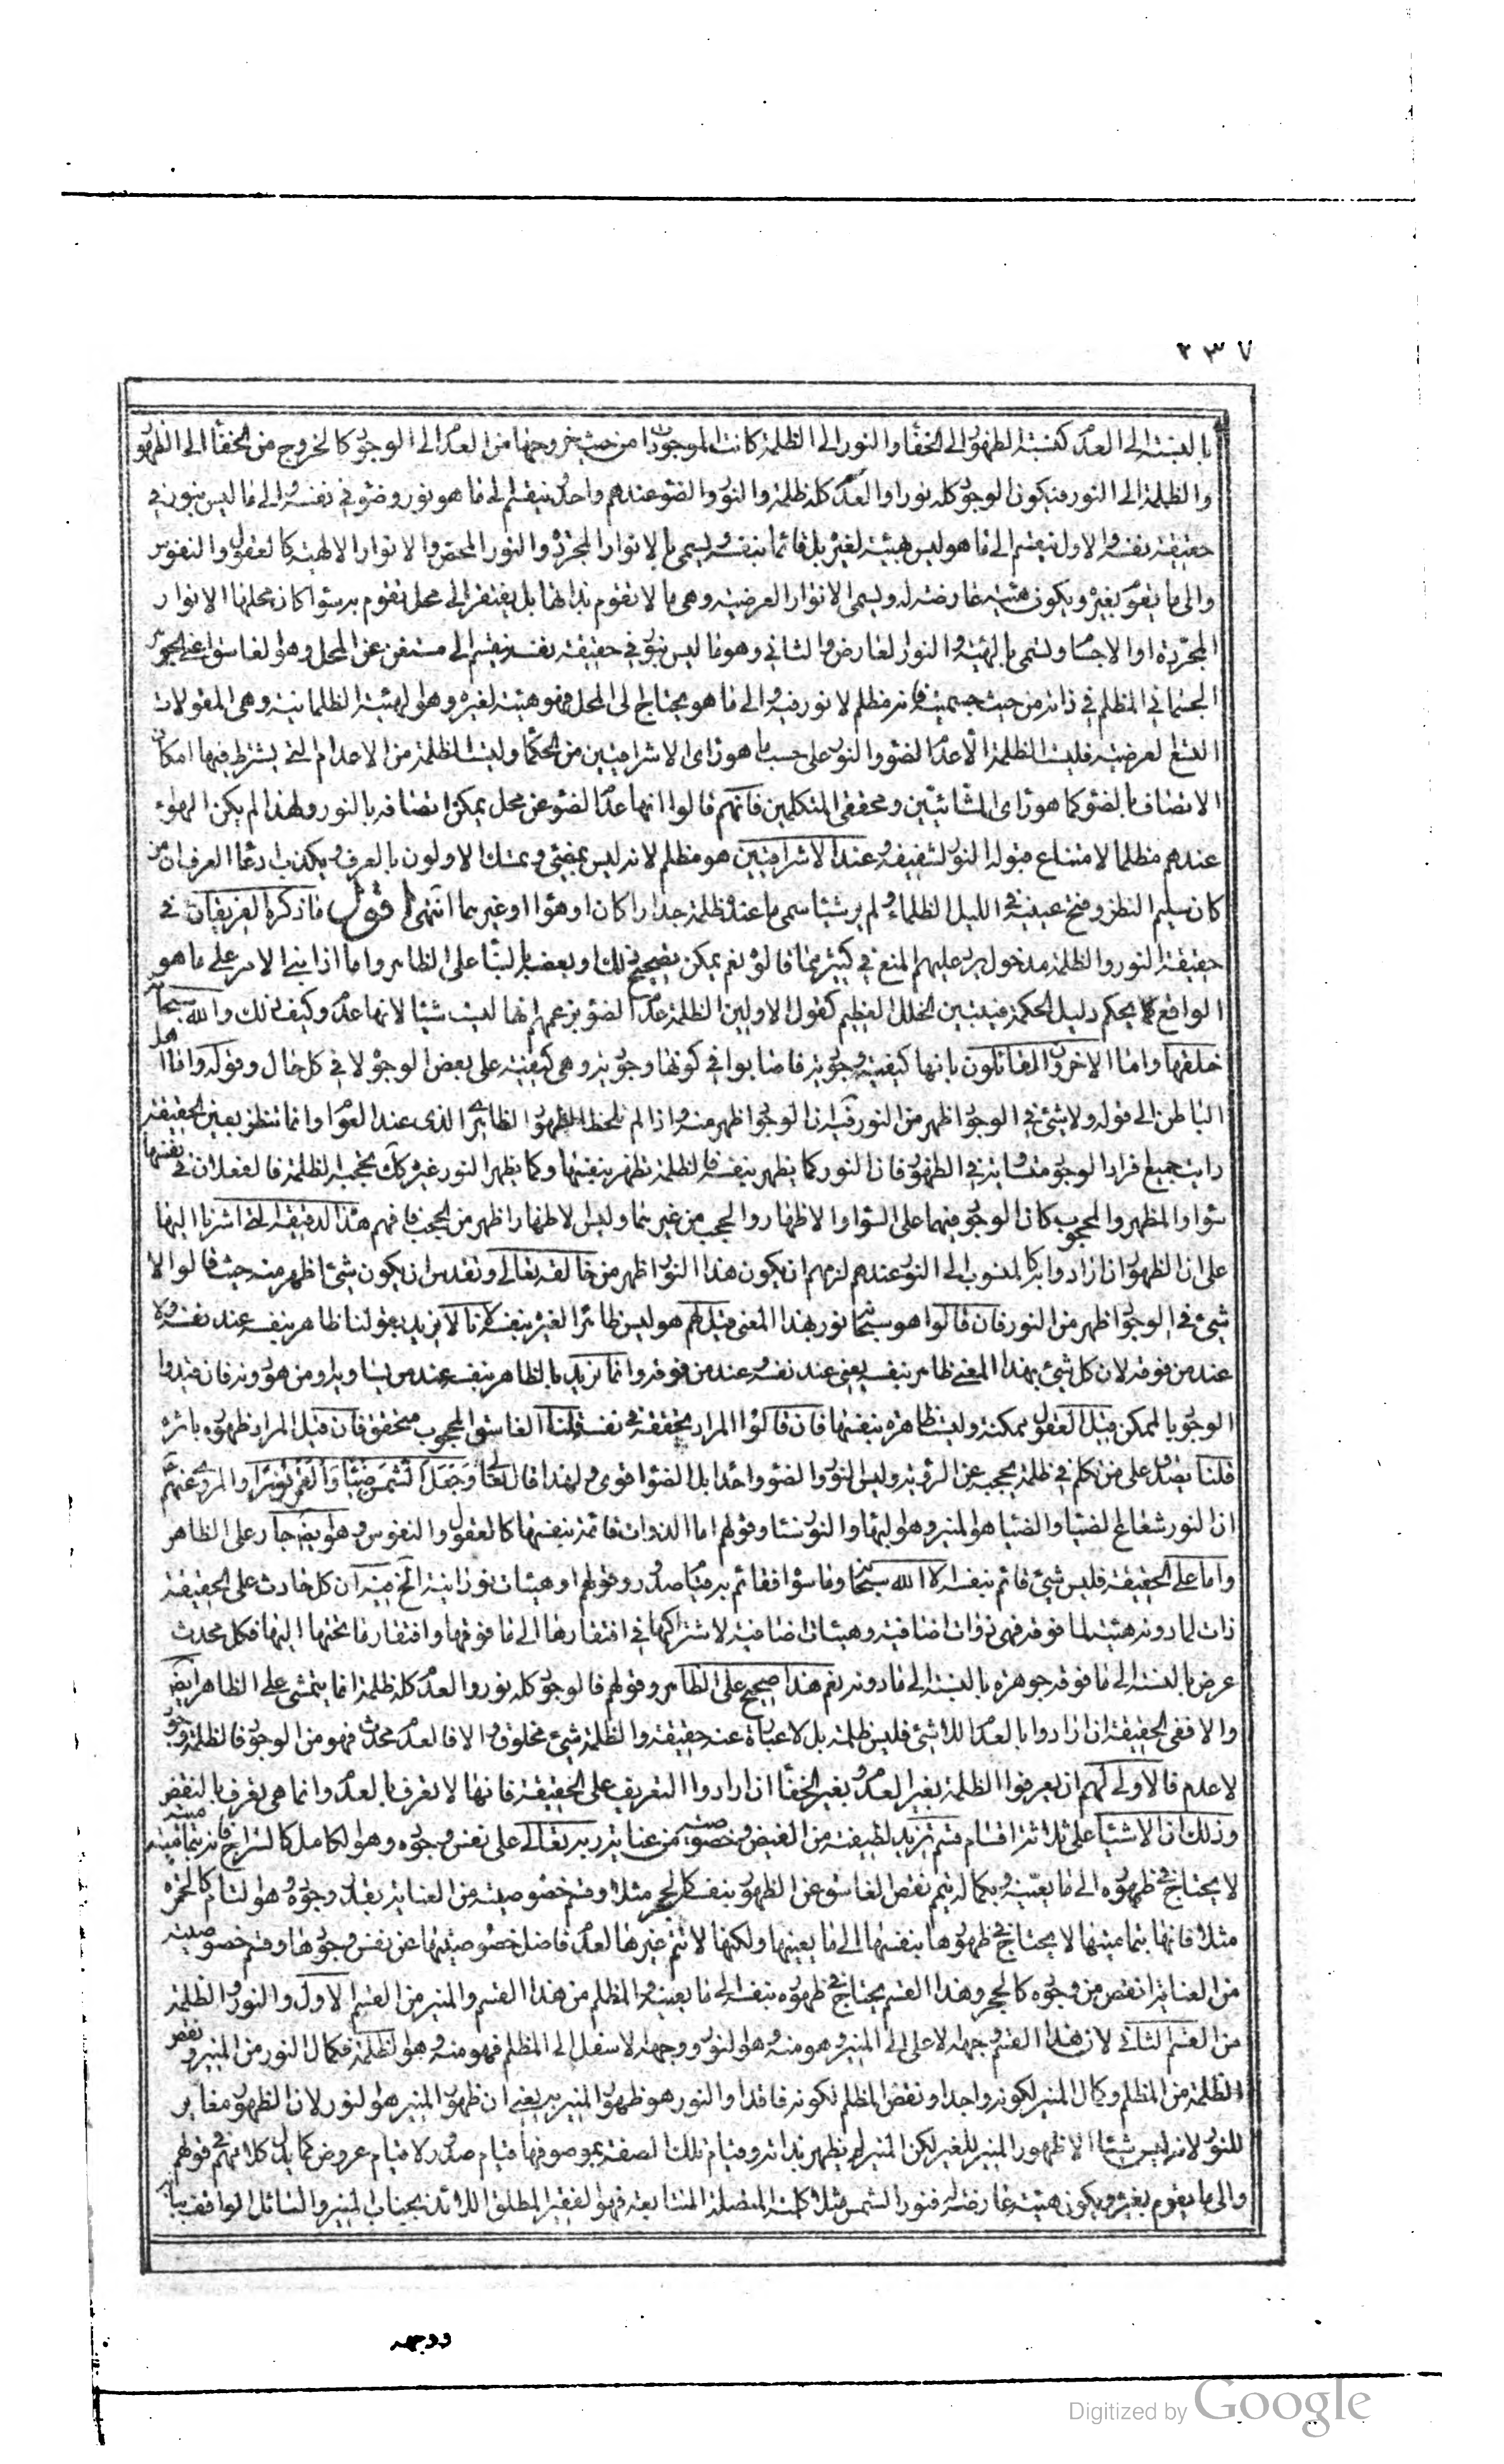 ٢٣٧
بالنسبة الى العدم كنسبة الظهور الى الخفاء والنور الى الظلمة كانت الموجودات من حيث خروجها من العدم الى الوجود كالخروج من الخفاء الى الظهور
والظلمة الى النور فيكون الوجود كله نورا والعدم كله ظلمة والنور والضوء عندهم واحد ينقسم الى ما هو نور وضوء في نفسه والى ما ليس بنور في
حقيقة نفسه والاول ينقسم الى ما هو ليس هيئة لغيره بل قائما بنفسه ويسمى بالانوار المجردة والنور المحض والانوار الالهية كالعقول والنفوس
والى ما يقوم بغيره ويكون هيئة عارضة له ويسمى الانوار العرضية وهي ما لا تقوم بذاتها بل يفتقر الى محل تقوم به سواء كان محلها الانوار
المجردة او الاجسام ويسمى بالهيئة والنور العارض والثاني وهو ما ليس بنور في حقيقة نفسه ينقسم الى مستغن عن المحل وهو الغاسق اعني الجوهر
الجسماني المظلم في ذاته من حيث جسميته فانه مظلم لا نور فيه والى ما هو يحتاج الى المحل فهو هيئة لغيره وهو الهيئة الظلمانية وهي المقولات
التسع العرضية فليست الظلمة الا عدم الضوء والنور على حسب ما هو رأى الاشراقيين من الحكماء وليست الظلمة من الاعدام التي يشترط فيها امكان
الاتصاف بالضوء كما هو رأى المشائيين ومحققي المتكلمين فانهم قالوا انها عدم الضوء عن محل يمكن اتصافه بالنور ولهذا لم يكن الهواء
عندهم مظلما لامتناع قبوله النور لشفيفه وعند الاشراقيين هو مظلم لانه ليس بمضيء وتمسك الاولون بالعرف ويكذب ادعاء العرف ان من
كان سليم النظر وفتح عينيه في الليل الظلماء ولم ير شيئا سمى ما عنده ظلمة جدارا كان او هواء او غيرهما انتهى اقول ما ذكره الفريقان في
حقيقة النور والظلمة مدخول يرد عليهم المنع في كثير مما قالوه نعم يمكن تصحيح ذلك او بعضه بالبناء على الظاهر واما اذا بنى الامر على ما هو
الواقع كما يحكم دليل الحكمة فيتبين الخلل العظيم كقول الاولين الظلمة عدم الضوء بزعمهم انها ليست شيئا لانها عدم وكيف ذلك والله سبحانه
خلقها واما الاخرون القائلون بانها كيفية وجودية فاصابوا في كونها وجودية وهي كيفية على بعض الوجوه لا في كل حال وقوله واما اهل
الباطن الى قوله ولا شيء في الوجود اظهر من النور فيه ان الوجود اظهر منه اذا لم نلحظ الظهور الظاهر الذي عند العوام وانما تنظر بعين الحقيقة
رأيت جميع افراد الوجود متساوية في الظهور فان النور كما يظهر بنفسه فالظلمة تظهر بنفسها وكما يظهر النور غيره كك تحجب الظلمة فالفعلان في نفسهما
سواء والمظهر والمحجوب كان الوجود فيهما على السواء والاظهار والحجب من غيرهما وليس الاظهار اظهر من الحجب فافهم هذه الدقيقة التي اشرنا اليها
على ان الظهور ان ارادوا به كالمنسوب الى النور عندهم لزمهم ان يكون هذا النور اظهر من خالقه تعالى وتقدس ان يكون شيء اظهر منه حيث قالوا لا
شيء في الوجود اظهر من النور فان قالوا هو سبحانه نور بهذا المعنى قيل لهم هو ليس ظاهرا لغيره بنفسه لانا لا نريد بقولنا ظاهر بنفسه عند نفسه ولا
عند من فوقه لان كل شيء بهذا المعنى ظاهر بنفسه يعني عند نفسه وعند من فوقه وانما نريد بالظاهر بنفسه عند من يساويه او من هو دونه فان قيدوا
الوجود بالممكن قيل العقول ممكنة وليست ظاهرة بنفسها فان قالوا المراد تحققه في نفسه قلنا الغاسق المحجوب متحقق فان قيل المراد ظهوره باثره
قلنا يصدق على من تكلم في ظلمة يحجب عن الرؤية وليس النور والضوء واحدا بل الضوء اقوى ولهذا قال تعالى وجعل الشمس ضياء والقمر نورا والمروي عنهم ع
ان النور شعاع الضياء والضياء هو المنير وهو البهاء والنور سناء وقولهم اما الذوات قائمة بنفسها كالعقول والنفوس وهو ايضا جار على الظاهر
واما على الحقيقة فليس شيء قائم بنفسه الا الله سبحانه وما سواه فقائم به قيام صدور وقولهم او هيئات نورانية الخ فيه ان كل حادث على الحقيقة
ذات لما دونه هيئة لما فوقه فهي ذوات اضافية وهيئات اضافية لاشتراكها في افتقارها الى ما فوقها وافتقار ما تحتها اليها فكل محدث
عرض بالنسبة الى ما فوقه جوهر بالنسبة الى ما دونه نعم هذا صحيح على الظاهر وقولهم فالوجود كله نور والعدم كله ظلمة انما يتمشى على الظاهر ايض
والا ففي الحقيقة ان ارادوا بالعدم اللاشيء فليس ظلمة بل لا عبارة عنه حقيقة والظلمة شيء مخلوق والا فالعدم محدث فهو من الوجود فالظلمة وجود
لا عدم فالاولى لهم ان يعرفوا الظلمة بغير العدم وبغير الخفاء ان ارادوا التعريف على الحقيقة فانها لا تعرف بالعدم وانما هي تعرف بالنقص
وذلك ان الاشياء على ثلاثة اقسام قسم تزيد لطيفته من الفيض وخصوصيته من عناية ربه تعالى على نفس وجوده وهو الكامل كالسراج فانه بتماميته
لا يحتاج في ظهوره الى ما يعينه وبكماله يتمم نقص الغاسق عن الظهور بنفسه كالحجر مثلا وقسم خصوصيته من العناية بقدر وجوده وهو التام كالجمرة
مثلا فانها بتماميتها لا يحتاج في ظهورها بنفسها الى ما يعينها ولكنها لا تتمم غيرها لعدم فاضل خصوصيتها عن نفس وجودها وقسم خصوصيته
من العناية انقص من وجوده كالحجر وهذا القسم يحتاج في ظهوره بنفسه الى ما يعينه والمظلم من هذا القسم والمنير من القسم الاول والنور والظلمة
من القسم الثاني لان هذا القسم وجهه الاعلى الى المنير وهو منه وهو النور ووجهه الاسفل الى المظلم فهو منه وهو الظلمة فكمال النور من المنير ونقص
الظلمة من المظلم وكمال المنير لكونه واجدا ونقص المظلم لكونه فاقدا والنور هو ظهور المنير به يعني ان ظهور المنير هو النور لا ان الظهور مغاير
للنور لانه ليس شيئا الا ظهور المنير للغير لكن المنير لم يظهر بذاته وقيام تلك الصفة بموصوفها قيام صدور لا قيام عروض كما يدل كلامهم في قولهم
والى ما يقوم بغيره ويكون هيئة عارضة له فنور الشمس مثلا كلمة المتصلة المتتابعة فهو الفقير المطلق اللائذ بجناب المنير والسائل الواقف ببابه
ووجهه
Digitized by Google